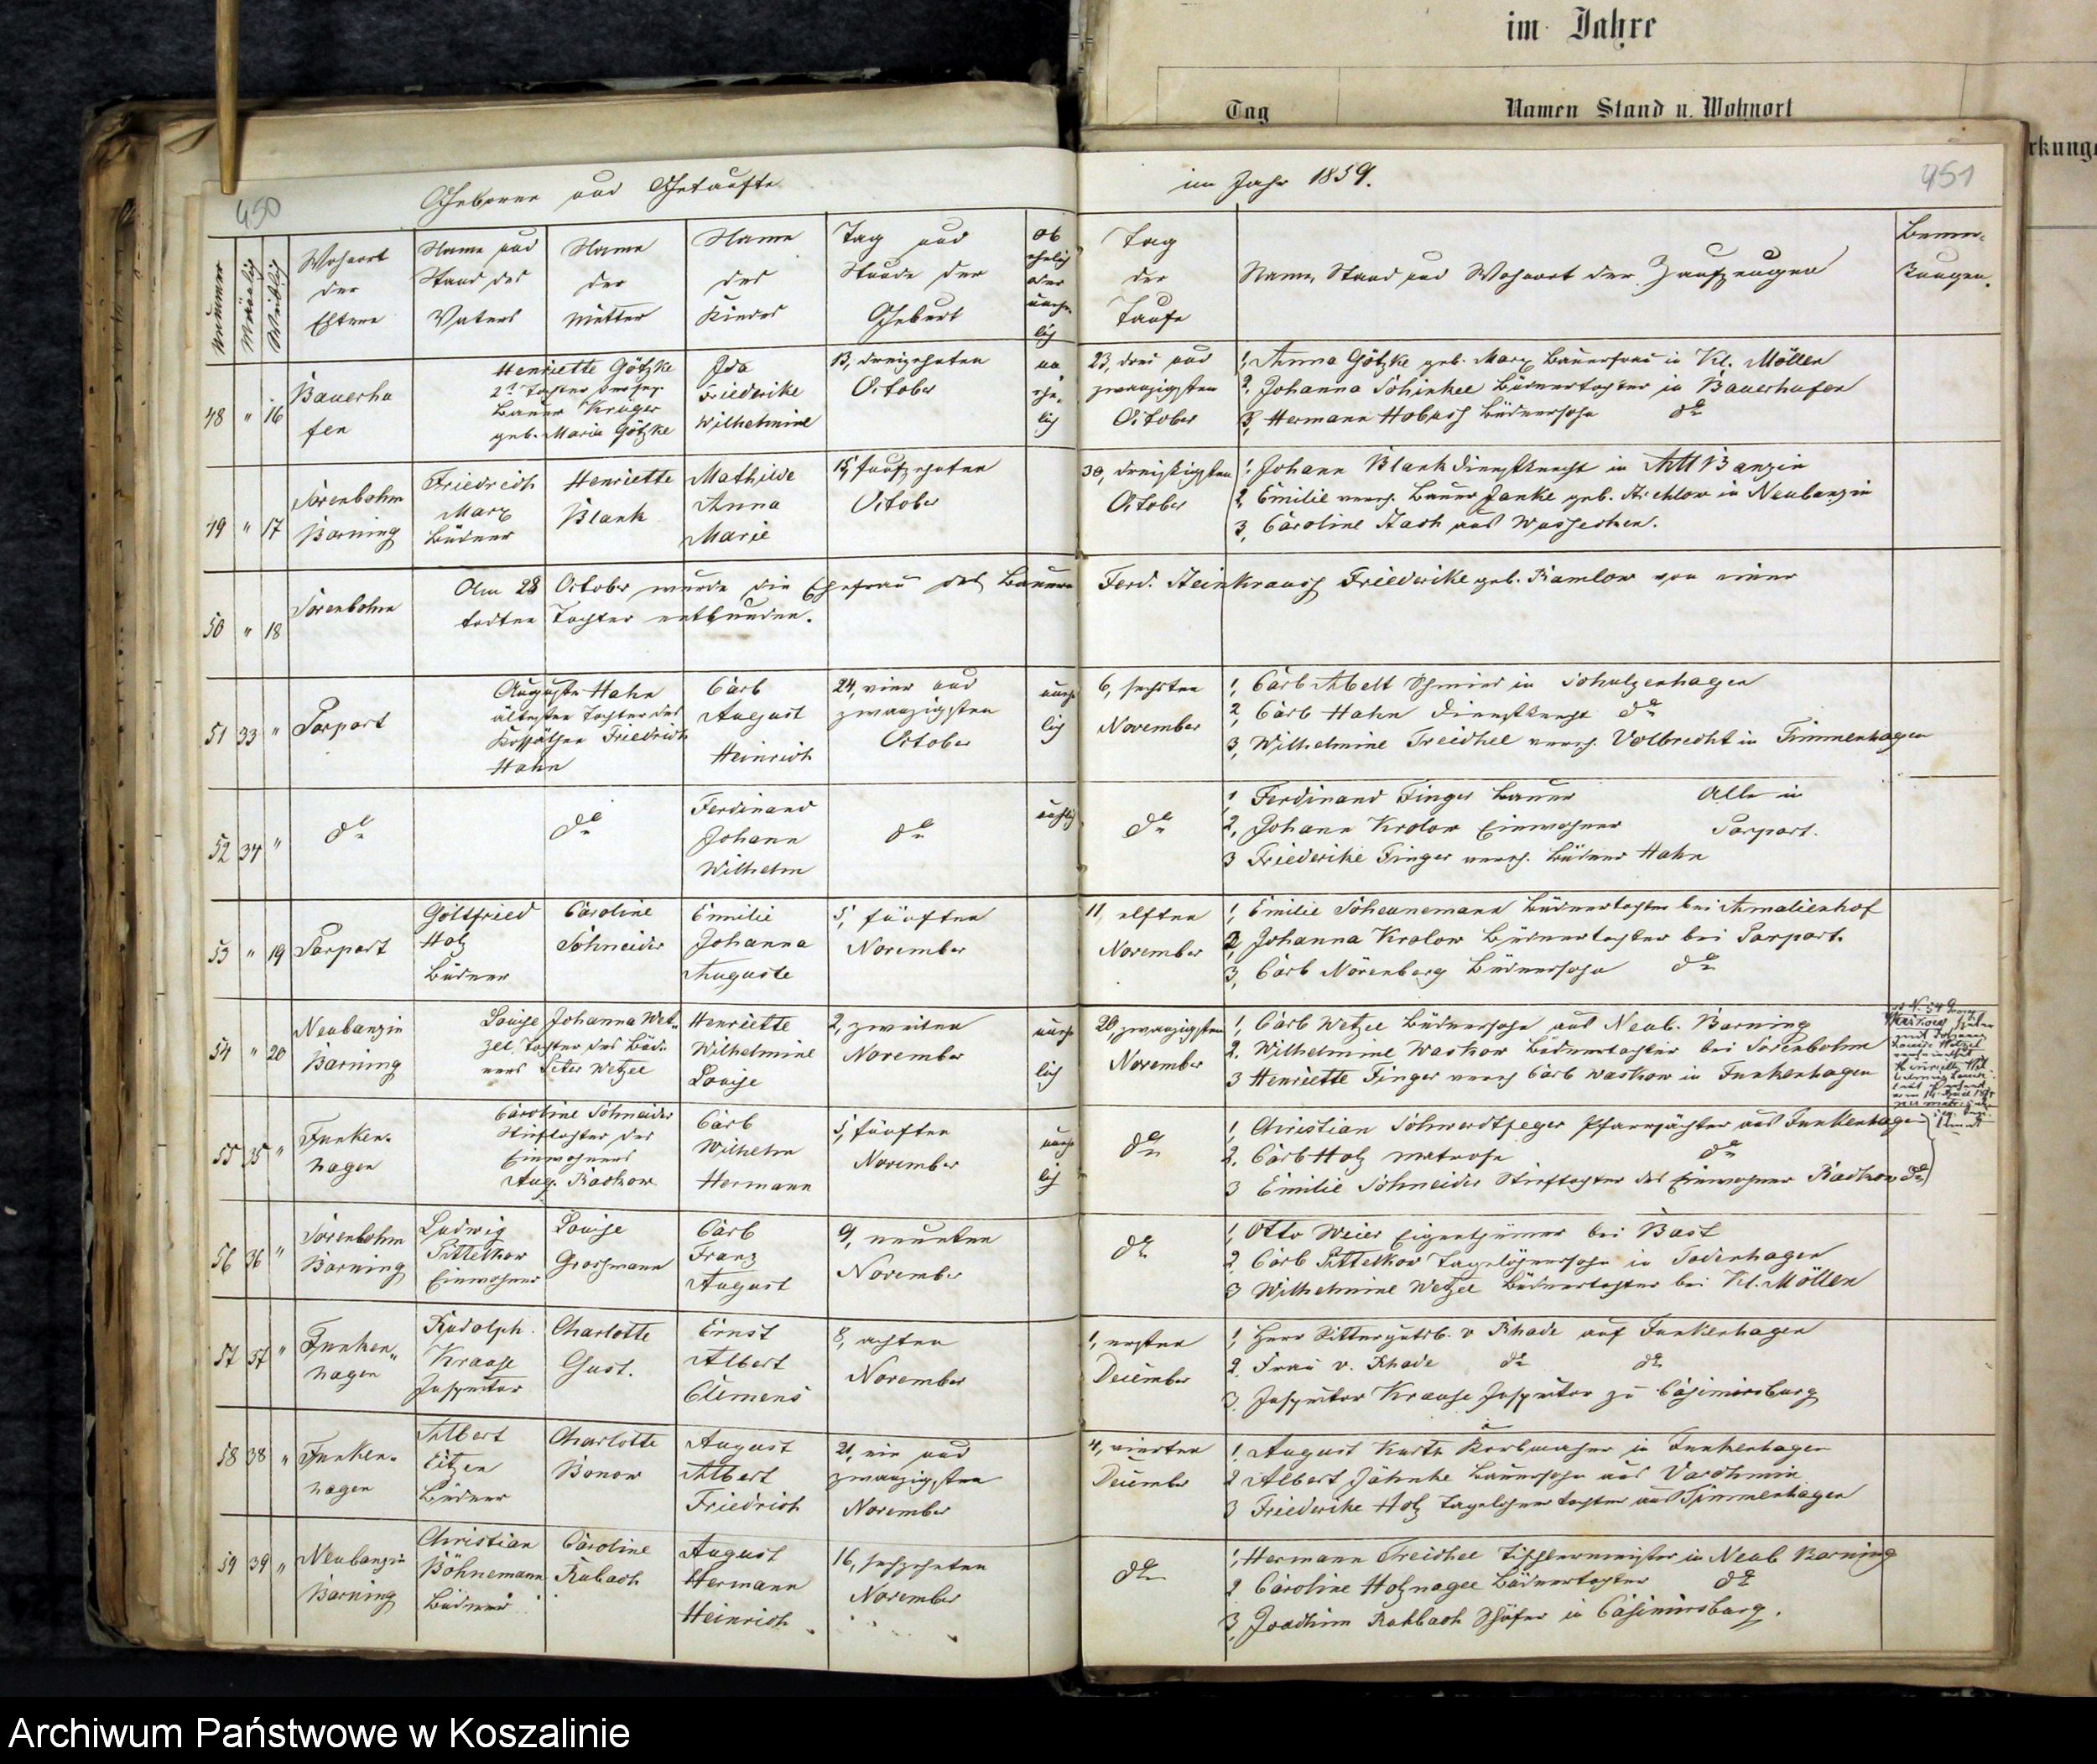 im Jahre
Tag
Namen Stand u. Wohnort
rkunge
450
Geborene und Getaufte
im Jahr 1859.
451
Nummer
Männlich
Weiblich
Wohnort
der
Eltern
Name und
Stand des
Vaters
Name
der
Mutter
Name
des
Kindes
Tag und
Stunde der
Geburt
Ob
ehelich
oder
unehe-
lich
Tag
der
Taufe
Name, Stand und Wohnort der Taufzeugen
Bemer-
kungen.
48 " 16
Bauerhu
fen
Henriette Götzke
2te Tochter
Bauer Krüger
geb. Maria Götzke
Ida
Friederike
Wilhelmine
13, dreizehnten
October
un
ehe-
lich
23, drei und
zwanzigsten
October
1, Anna Götzke geb. Marx Bauerfrau in Kl. Möllen
2, Johanna Schinkel Büdnertochter in Bauerhufen
3, Hermann Hobusch Büdnersohn do
49 " 17
Sorenbohm
Borning
Friedrich
Marx
Büdner
Henriette
Blank
Mathilde
Anna
Marie
15, fünfzehnten
October
30, dreißigsten
October
1, Johann Blank Dienstknecht in Alt Banzin
2, Emilie vereh. Bauer Janke geb. in Neubanzin
3, Caroline aus Wusseken.
50 " 18
Sorenbohm
Am 28 October wurde die Ehefrau des Bauern Ferd. Steinkrauss Friederike geb. Ramlow von einer
todten Tochter entbunden.
51 33 "
Porpart
Auguste Hahn
älteste Tochter des
Kossäthen Friedrich
Hahn
Carl
August
Heinrich
24, vier und
zwanzigsten
October
unehe
lich
6, sechsten
November
1, Carl Abelt Schmied in Schulzenhagen
2, Carl Hahn Dienstknecht do
3, Wilhelmine Treichel vereh. Volbrecht in Timmenhagen
52 34 "
do
do
Ferdinand
Johann
Wilhelm
do
do
1, Ferdinand Finger Bauer Alle in
2, Johann Krolow Einwohner Porpart.
3 Friederike Finger vereh. Büdner Hahn
53 " 19
Porpart
Gottfried
Holz
Büdner
Caroline
Schneider
Emilie
Johanna
Auguste
5, fünften
November
11, elften
November
1, Emilie Scheunemann Büdnertochter bei Amalienhof
2, Johanna Krolow Büdnertochter bei Porpart.
3, Carl Nörenberg Büdnersohn do
54 " 20
Neubanzin
Borning
Louise Johanna Wet-
zel, Tochter des Büd-
ners Peter Wetzel
Henriette
Wilhelmine
Louise
2, zweiten
November
unehe
lich
20, zwanzigsten
November
1, Carl Wetzel Büdnersohn aus Neub. Borning
2. Wilhelmine Waskow Büdnertochter bei Sorenbohm
3 Henriette Finger vereh Carl Waskow in Funkenhagen
55 35 "
Funken-
hagen
Caroline Schneider
Stieftochter des
Einwohners
Aug. Radkow
Carl
Wilhelm
Hermann
5, fünften
November
unehe
lich
do
1, Christian Schwerdtfeger Pfarrpächter aus Funkenhagen
2. Carl Holz Matrose do
3 Emilie Schneider Stieftochter des Einwohner Radkow do
56 36 "
Sorenbohm
Borning
Ludwig
Pittelkow
Einwohner
Louise
Grossmann
Carl
Franz
August
9, neunten
November
do
1, Otto Meier Eigenthümer bei Bast
2, Carl Pittelkow Tagelöhnersohn in Todenhagen
3 Wilhelmine Wetzel Büdnertochter bei Kl. Möllen
57 37 "
Funken-
hagen
Rudolph
Krause
Inspector
Charlotte
Gust.
Ernst
Albert
Clemens
8, achten
November
1, ersten
December
1, Herr Rittergutsb. v Rhade auf Funkenhagen
2. Frau v. Rhade do do
3. Inspector Krause Inspector zu Casimirsburg
58 38 "
Funken-
hagen
Albert
Eitzen
Büdner
Charlotte
Bonow
August
Albert
Friedrich
21, ein und
zwanzigsten
November
4, vierten
December
1. August Kurth Korbmacher in Funkenhagen
2 Albert Jähnke Bauersohn aus Vordhmin
3 Friederike Holz Tagelöhnertochter aus Timmenhagen
59 39 "
Neubanzin
Borning
Christian
Böhnemann
Büdner
Caroline
Rubach
August
Hermann
Heinrich
16, sechzehnten
November
do
1, Hermann Treichel Tischlermeister in Neub Borning
2 Caroline Holznagel Büdnertochter do
3, Joachim Rahbach Schäfer in Casimirsburg.
Archiwum Państwowe w Koszalinie